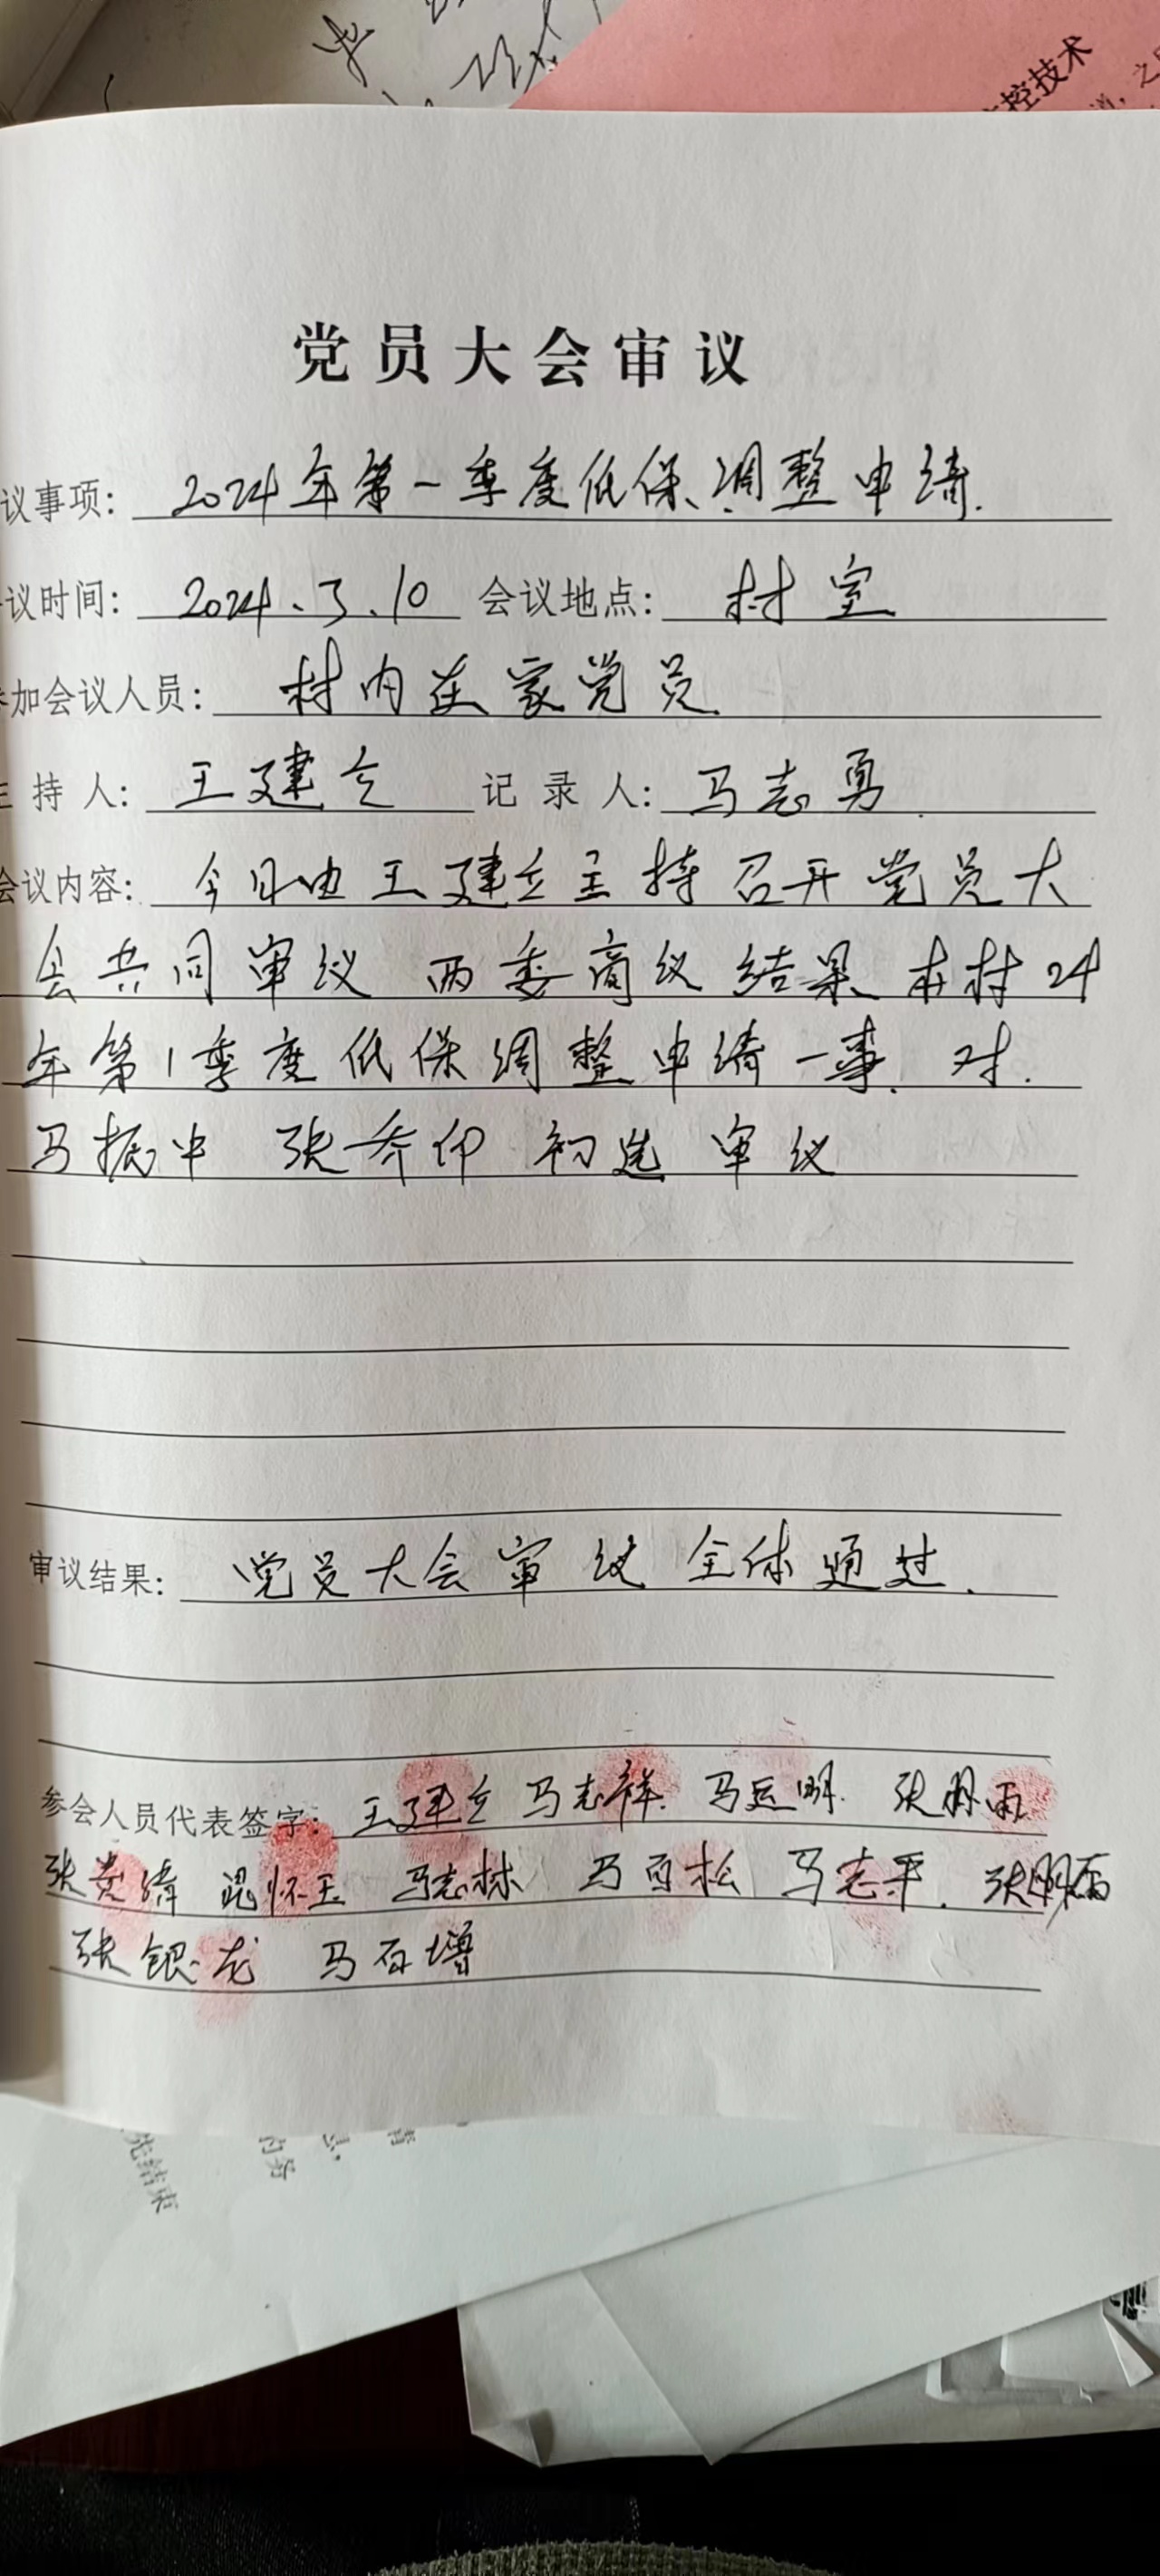 控技术
党员大会审议
议事项：2024年第一季度低保、调整申请.
议时间：2024.3.10 会议地点：村室
加会议人员：村内在家党员
持人：王建立 记录人：马志勇
会议内容：今日由王建立主持召开党员大
会共同审议 两委商议结果 本村24
年第1季度低保调整申请一事. 对.
马振中 张 仰 初选 审议
审议结果：党员大会审议 全体通过.
参会人员代表签字：王建立 马志祥 马运明. 张明雨
张贵 怀玉 马志林 马百松 马志平. 张
张银龙 马石增
先结束